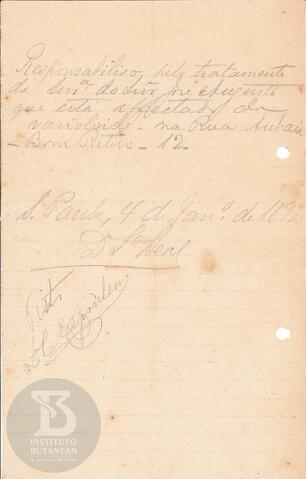 Responsabiliso, pelo tratamento
da Snrª. do Snr. José Augusto
que está affectada de
varioloide - na Rua
- Bom Retiro - 12.
S. Paulo, 4 de Janrº. de 189
Dr. S. Leal
Visto
INSTITUTO
BUTANTAN